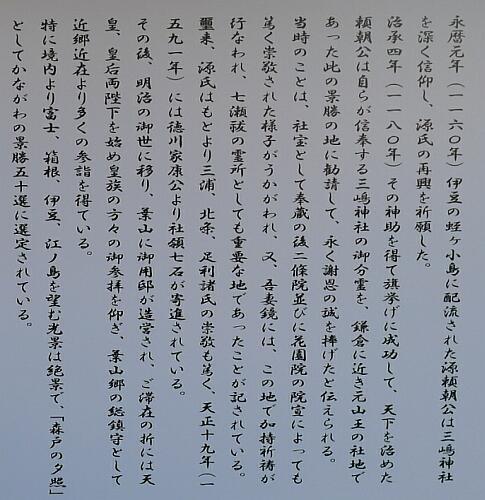 永暦元年(一一六〇年)伊豆の蛭ヶ小島に配流された源頼朝公は三嶋神社
を深く信仰し、源氏の再興を祈願した。
治承四年(一一八〇年)その神助を得て旗挙げに成功して、天下を治めた
頼朝公は自らが信奉する三嶋神社の御分霊を、鎌倉に近き元山王の社地で
あった此の景勝の地に勧請して、永く謝恩の誠を捧げたと伝えられる。
当時のことは、社宝として奉蔵の後二條院並びに花園院の院宣によっても
篤く崇敬された様子がうかがわれ、又、吾妻鏡には、この地で加持祈祷が
行なわれ、七瀬祓の霊所としても重要な地であったことが記されている。
爾来、源氏はもとより三浦、北条、足利諸氏の崇敬も篤く、天正十九年(一
五九一年)には徳川家康公より社領七石が寄進されている。
その後、明治の御世に移り、葉山に御用邸が造営され、ご滞在の折には天
皇、皇后両陛下を始め皇族の方々の御参拝を仰ぎ、葉山郷の総鎮守として
近郷近在より多くの参詣を得ている。
特に境内より富士、箱根、伊豆、江ノ島を望む光景は絶景で、「森戸の夕照」
としてかながわの景勝五十選に選定されている。